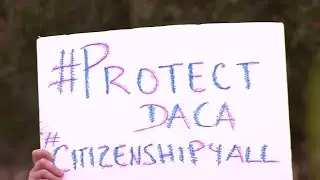 #PROTECT
DACA
#CITIZENSHIP4ALL